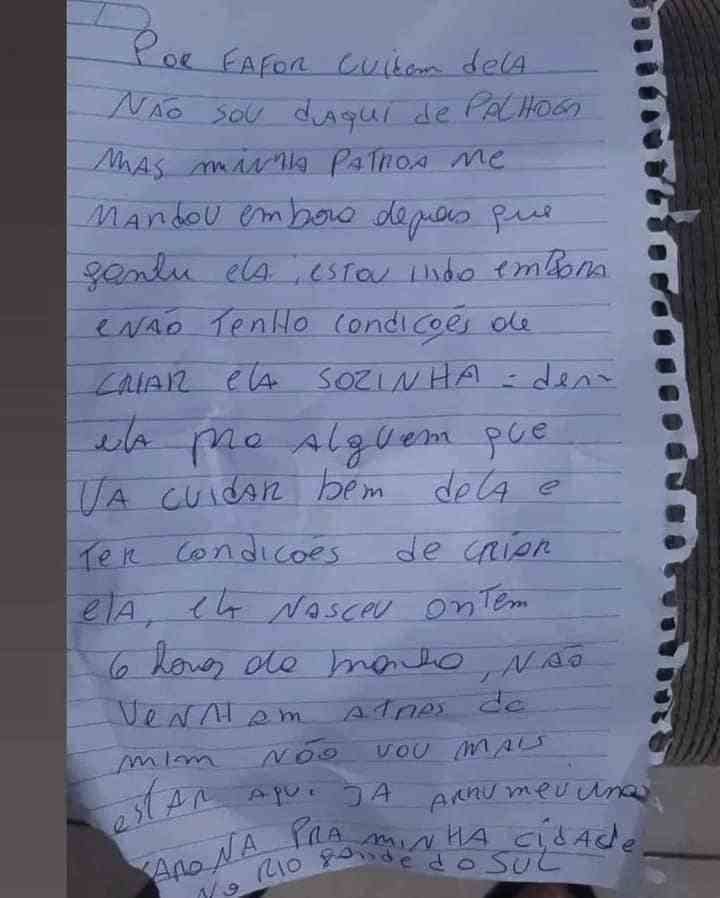 Por FAFOR cuidem dela
NÃO SOU dAqui de PALHOÇA
MAS minha PATROA me
MANDOU embora depois que
ganhei ela, ESTOU indo emBora
e NÃO TenHo condições de
CRIAR ela SOZINHA = den
ela pra Alguem que
VA CUIDAR bem dela e
TER condicoēs de criar
ela, ela NASCEU onTem
6 horas da manha, NÃO
VeNham ATRAS de
mim NÃO VOU mais
estAR Aqui JA ARRUmei uma
CARONA PRA minHA cidAde
No RIO gande do SUL